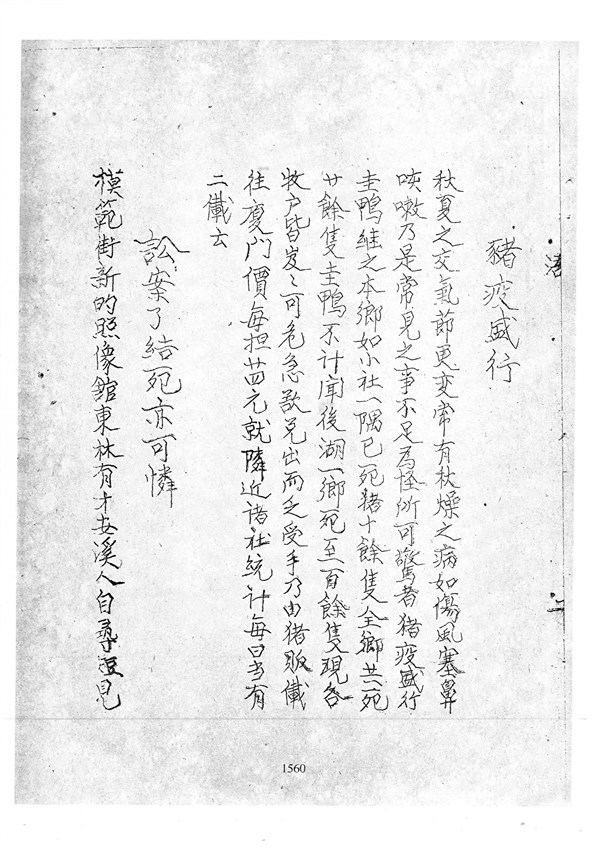 豬疫盛行
秋夏之交氣節更变常有秋燥之病如傷風塞鼻
咳嗽乃是常見之事不足為怪所可驚者猪疫盛行
圭鴨継之本鄉如小社一隅已死猪十餘隻全鄉共死
廿餘隻圭鴨不计聞後湖一鄉死至百餘隻現各
牧户皆岌〻可危急欲兑出而乏受手乃由猪販儎
往廈門價每担廿四元就隣近诸社統计每日当有
二儎去
訟案了结死亦可憐
模範街新的照像館東林有才安溪人自尋短見
1560